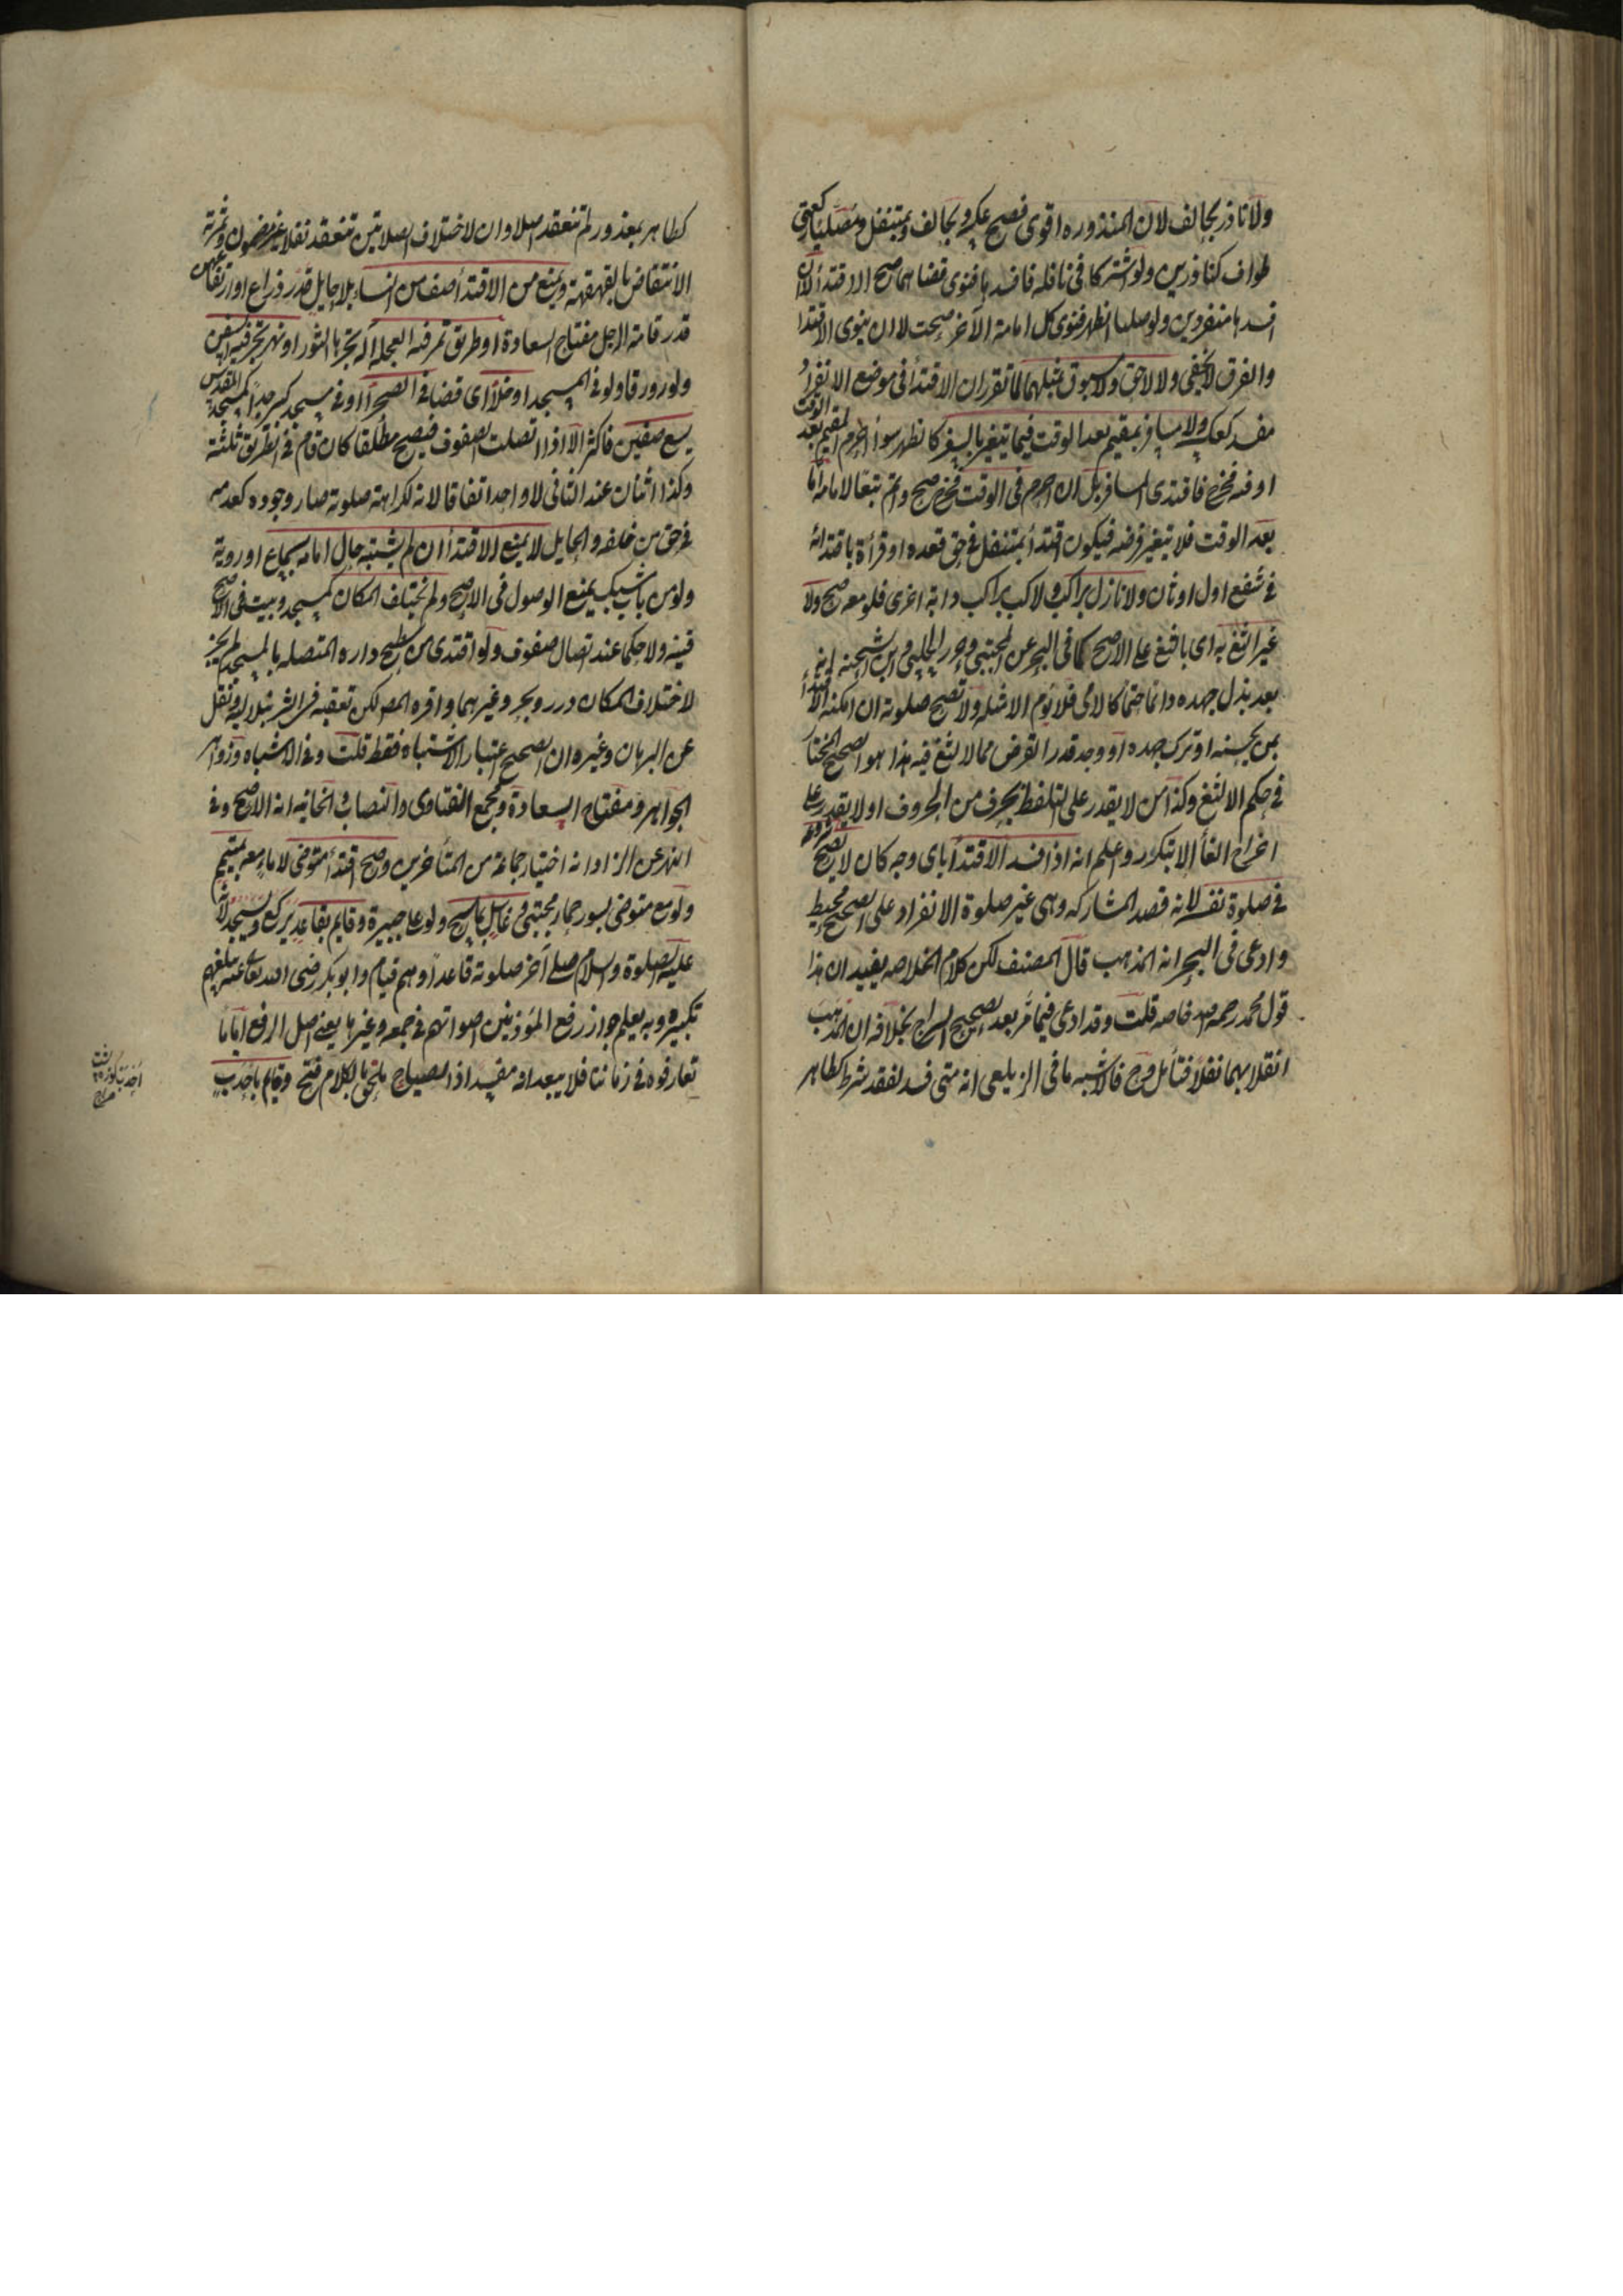 ولا ناذر بحالف لان المنذورة اقوى فصح عكسه وبحالف وبمتنفل ومصليا ركعتي
طواف كناذرين ولو اشتركا في نافلة فافسداها فنوى قضاهما صح الاقتدأ لا ان
افسداها منفردين ولو صليا الظهر فنوى كل امامة الآخر صحت لا ان ينوى الاقتدا
والفرق لا يخفى ولا لاحق ولا مسبوق بمثلهما لما تقرر ان الاقتدأ في موضع الانفراد
مفسد كعكسه ولا مسافر بمقيم بعد الوقت فيما يتغير بالسفر كالظهر سوأ احرم المقيم بعد الوقت
او فيه فخرج فاقتدى المسافر بل ان احرم في الوقت فخرج صح واتم تبعا لامامه اما
بعد الوقت فلا يتغير فرضه فيكون اقتدأ بمتنفل في حق قعده او قرأة باقتدائه
في شفع اول او ثان ولا نازل براكب ولا راكب براكب دابة اخرى فلو معه صح ولا
غير الثغ به اى بالثغ على الاصح كما في البحر عن المجتبى وحرر الحلبى وابن الشحنه انه
بعد بذل جهده دائما حتما كالامى فلا يؤم الا مثله ولا تصح صلوته ان امكنه الاقتدأ
بمن يحسنه او ترك جهده او وجد قدر الفرض مما لا لثغ فيه هذا هو الصحيح المختار
في حكم الالثغ وكذا من لا يقدر على التلفظ بحرف من الحروف او لا يقدر على
اخراج الفأ الا بتكرر واعلم انه اذا فسد الاقتدأ باى وجه كان لا يصح شروعه
في صلوة نفسه لانه قصد المشاركه وهى غير صلوة الانفراد على الصحيح محيط
وادعى في البحر انه المذهب قال المصنف لكن كلام الخلاصه يفيد ان هذا
قول محمد رحمه الله خاصه قلت وقد ادعى فيما مر بعد تصحيح السراج بخلافه ان المذهب
انقلابها نفلا فتأمل وح فالاشبه ما في الزيلعى انه متى فسد لفقد شرط كطاهر
كطاهر بمعذور لم تنعقد اصلا وان لاختلاف الصلاتين تنعقد نفلا غير مضمون وثمرته
الانتقاض بالقهقهة ويمنع من الاقتدأ صف من النساء بلا حايل قدر ذراع او ارتفاعهن
قدر قامة الرجل مفتاح السعادة او طريق تمر فيه العجلة آلة يجرها الثور او نهر تجرى فيه السفن
ولو زورقا ولو في المسجد او خلأ اى فضا في الصحرأ او في مسجد كبير جدا كمسجد المقدس
يسع صفين فاكثر الا اذا اتصلت الصفوف فيصح مطلقا كان قام في الطريق ثلثة
وكذا اثنان عند الثانى لا واحد اتفاقا لانه لكراهة صلوته صار وجوده كعدمه
في حق من خلفه والحايل لا يمنع الاقتدأ ان لم يشتبه حال امامه بسماع او روية
ولو من باب مشبك يمنع الوصول في الاصح ولم يختلف المكان كمسجد وبيت في الاصح
قنيه ولا حكما عند اتصال صفوف ولو اقتدى من سطح داره المتصله بالمسجد لم يجز
لاختلاف المكان درر وبحر وغيرهما واقره المص لكن تعقبه في الشرنبلاليه ونقل
عن البرهان وغيره ان الصحيح اعتبار الاشتباه فقط قلت وفي الاشباه وزواهر
الجواهر ومفتاح السعادة ومجمع الفتاوى والنصاب والخانيه انه الاصح وفي
النهر عن الزاد انه اختيار جماعة من المتأخرين وصح اقتدأ متوضى لا ماء معه بمتيمم
ولو مع متوضى بسور حمار مجتبى وغاسل بماسح ولو على جبيرة وقايم بقاعد يركع ويسجد لانه
عليه الصلوة والسلام صلى آخر صلوته قاعدا وهم قيام وابو بكر رضى الله تعالى عنه يبلغهم
تكبيره وبه يعلم جواز رفع المؤذنين اصواتهم في جمعه وغيرها يعنى اصل الرفع اما ما
تعارفوه في زماننا فلا يبعد انه مفسد اذ الصياح ملحق بالكلام فتح وقايم باحدب